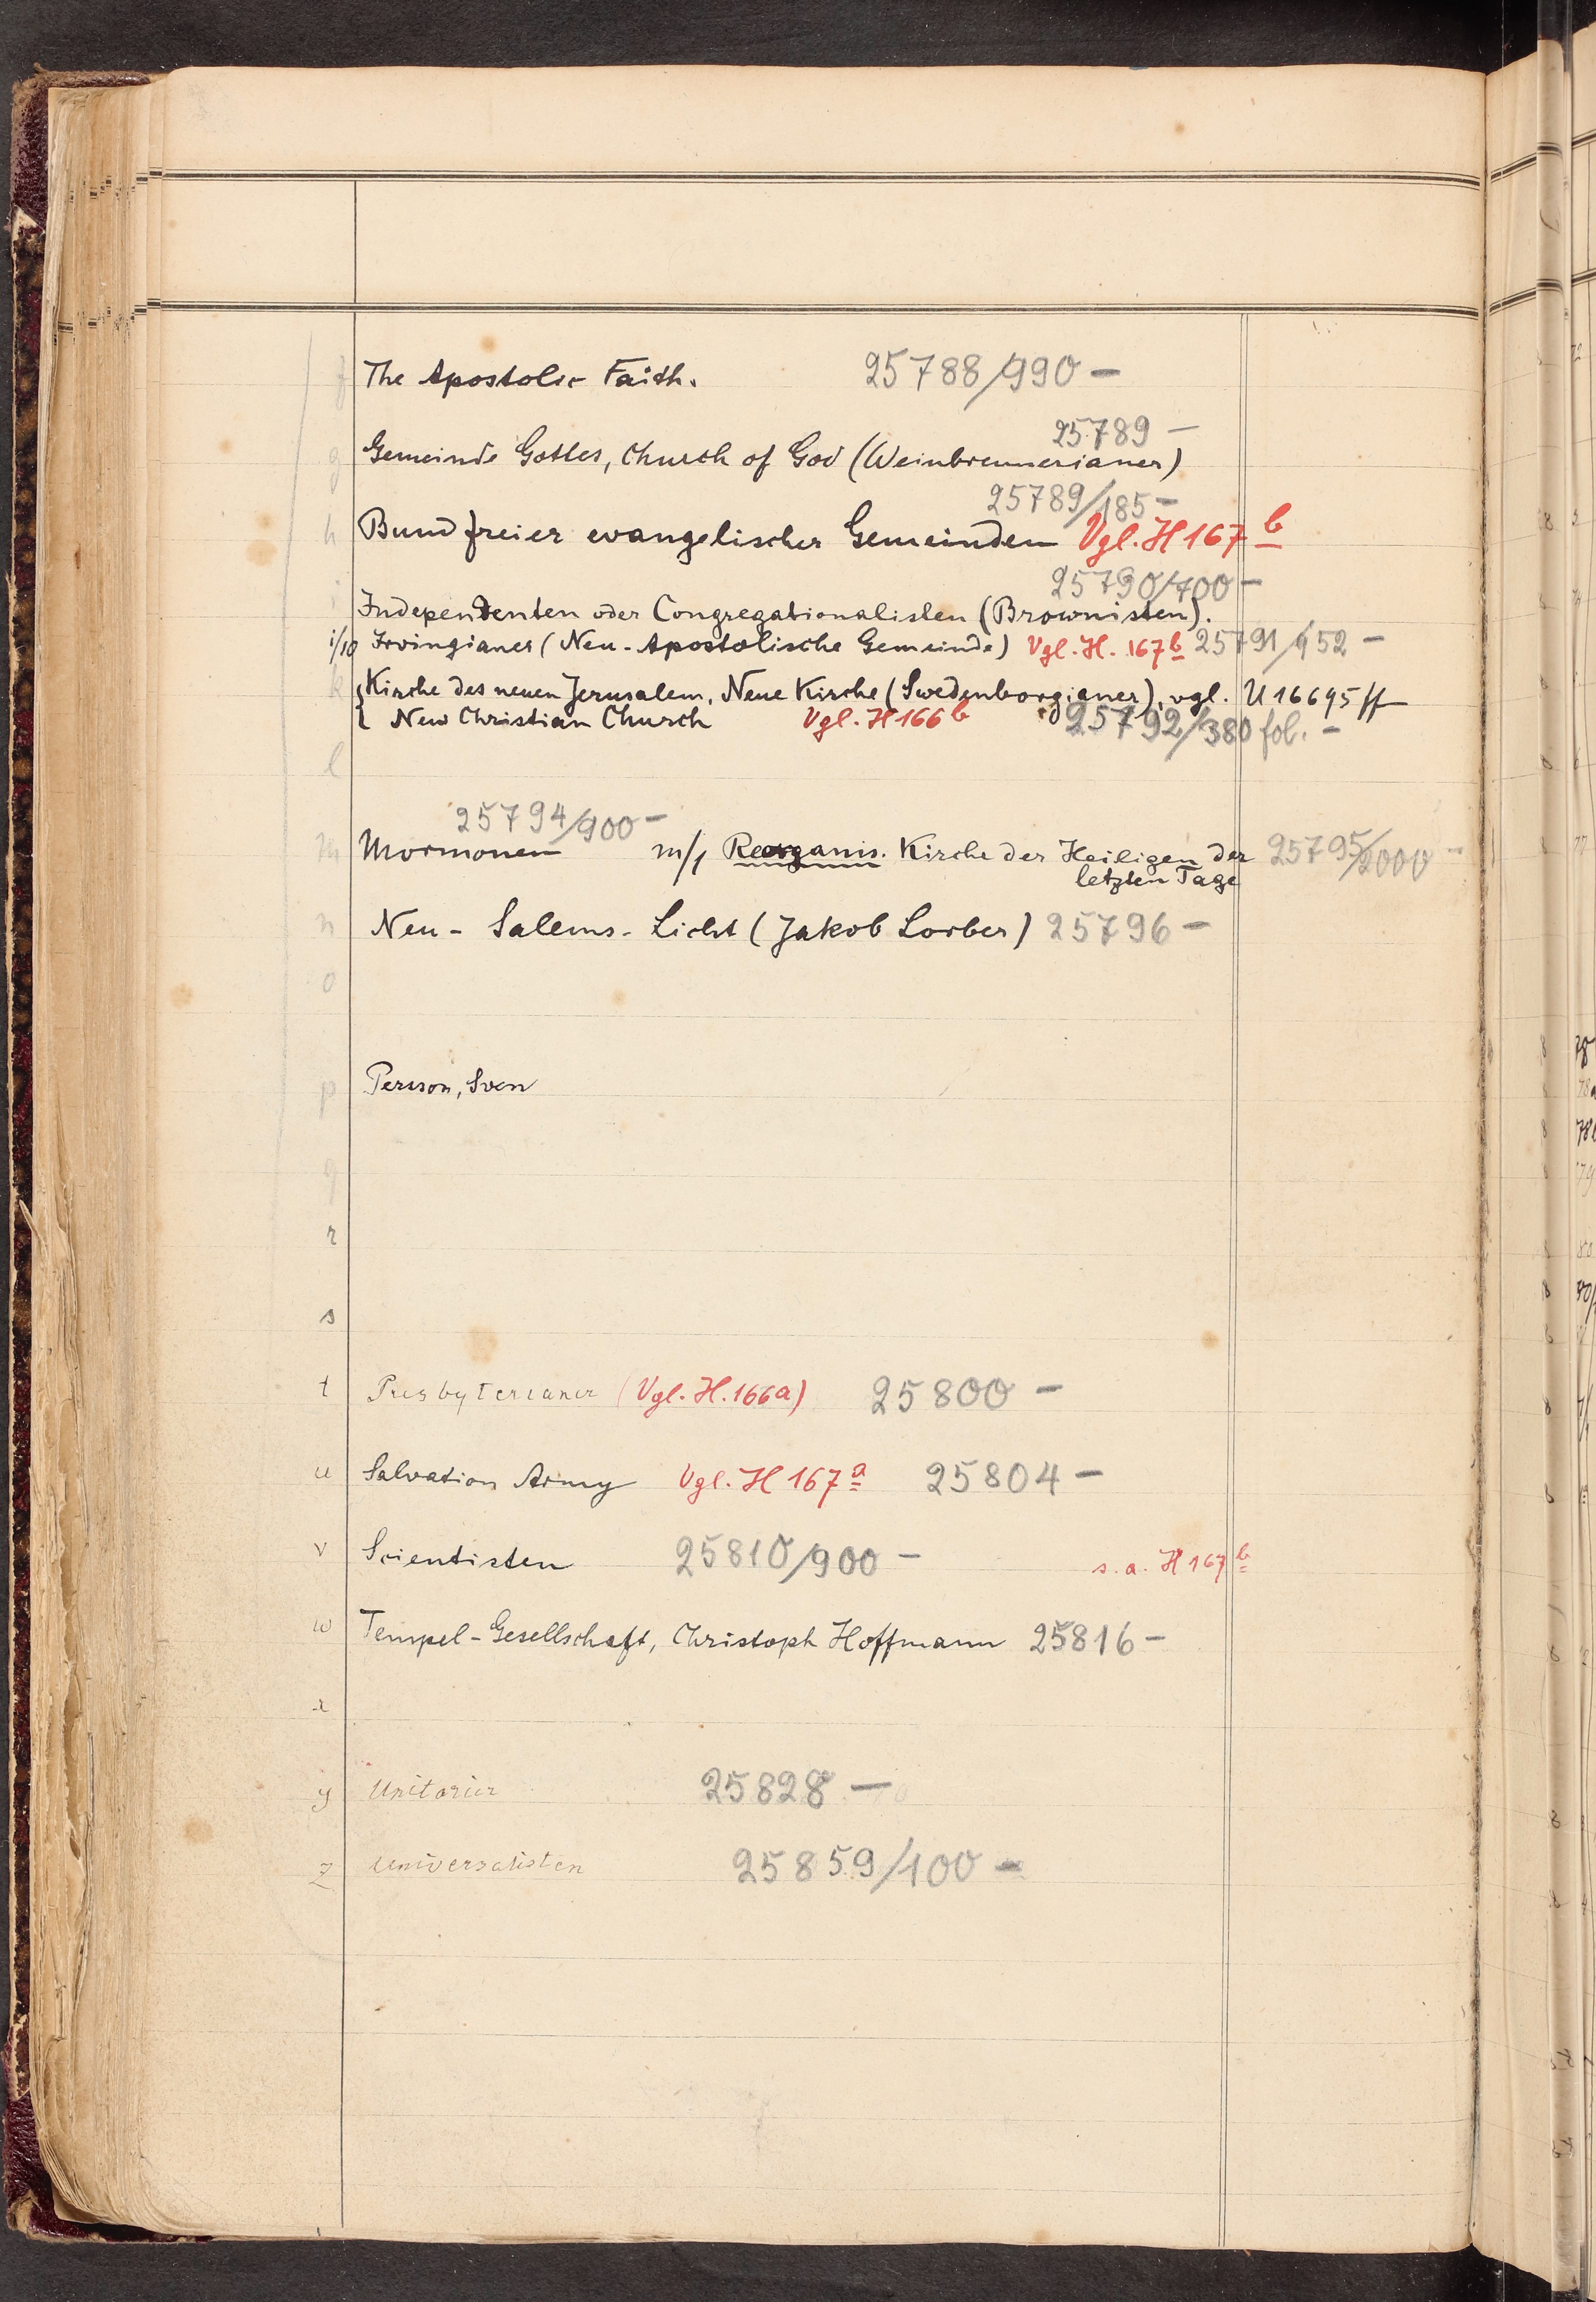 f The Apostolic Faith. 25788/990 —
25789 —
g Gemeinde Gottes, Church of God (Weinbrennerianer)
25789/185 —
h Bund freier evangelischer Gemeinden Vgl. H 167 b
25790/700 —
i Independenten oder Congregationalisten (Brownisten).
i/10 Irvingianer (Neu-Apostolische Gemeinde) Vgl. H. 167 b 25791/952 —
k { Kirche des neuen Jerusalem, Neue Kirche (Swedenborgianer), vgl. U 16695 ff
{ New Christian Church Vgl. H 166 b 25792/380 fol. —
l
25794/900 —
m Mormonen m/1 Reorganis. Kirche der Heiligen der 25795/2000 —
letzten Tage
n Neu-Salems-Licht (Jakob Lorber) 25796 —
o
p Persson, Sven
q
r
s
t Presbyterianer (Vgl. H. 166a) 25800 —
u Salvation Army Vgl. H 167 a 25804 —
v Scientisten 25810/900 — s. a. H 167 b
w Tempel-Gesellschaft, Christoph Hoffmann 25816 —
x
y Unitarier 25828 —
z Universalisten 25859/100 —